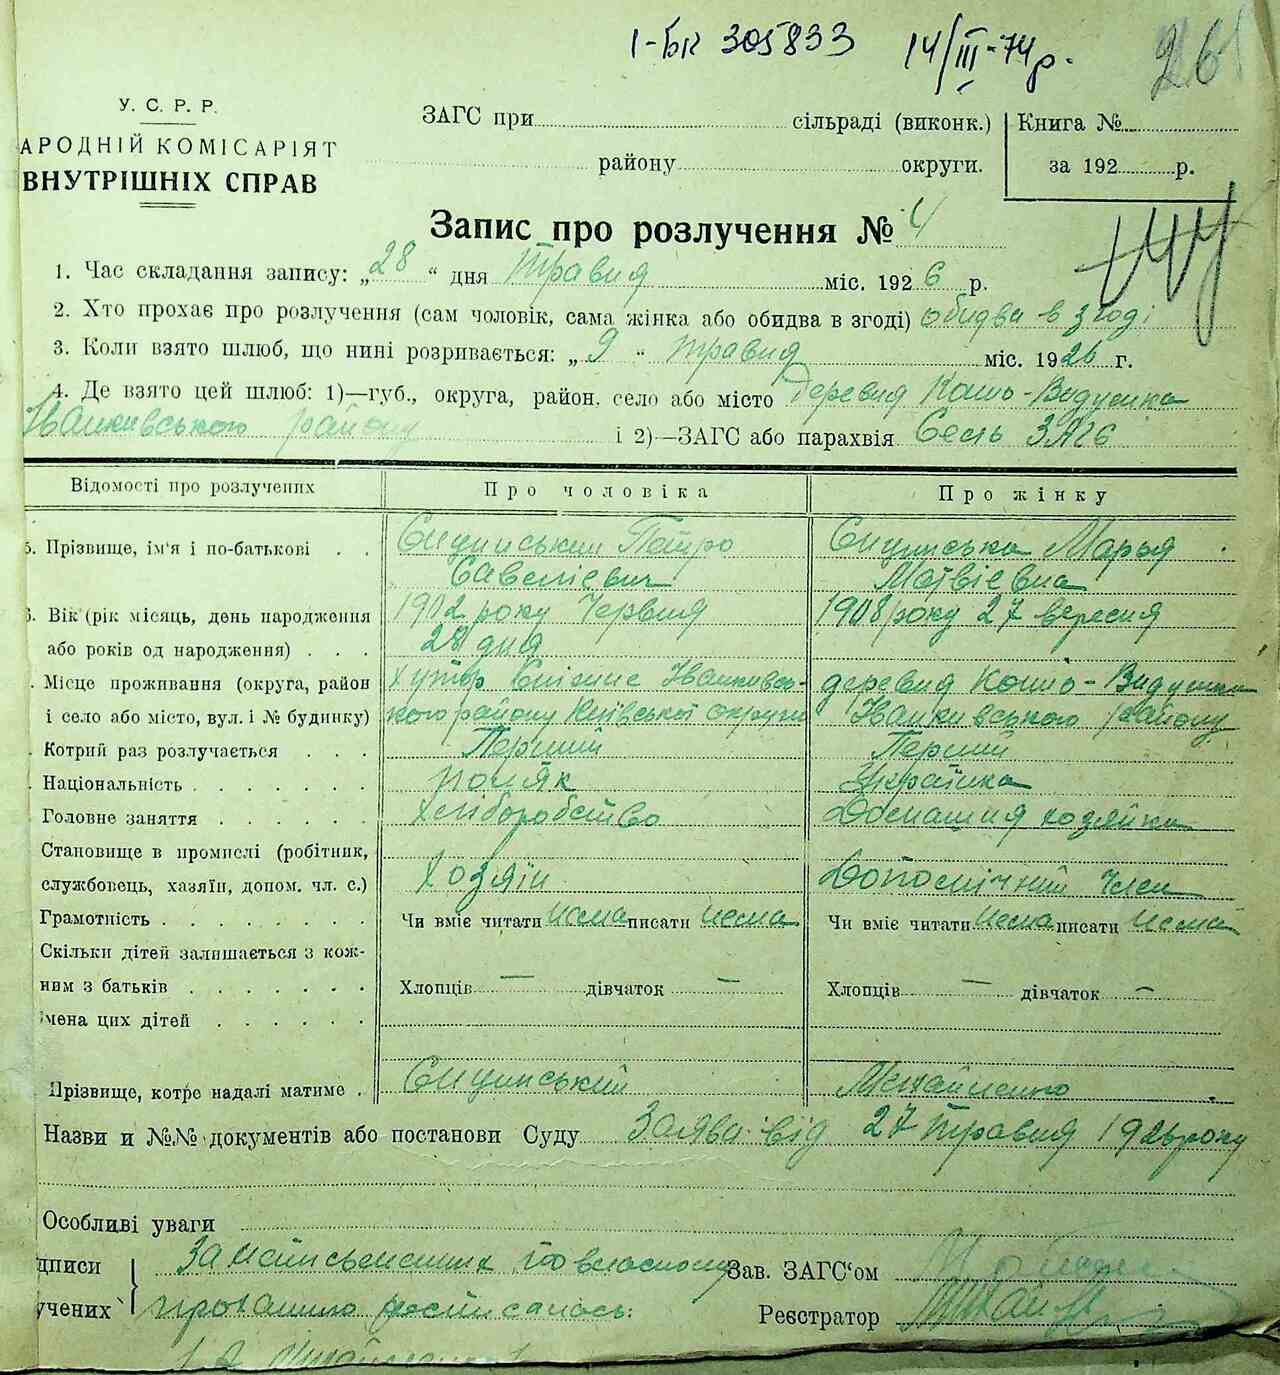 1-БК 305833 14/III-74р.
26
У. С. Р. Р.
АРОДНІЙ КОМІСАРІЯТ
ВНУТРІШНІХ СПРАВ
ЗАГС при сільраді (виконк.)
району округи.
Книга №
за 192 р.
Запис про розлучення № 4
1. Час складання запису: „28“ дня Травня міс. 1926 р.
2. Хто прохає про розлучення (сам чоловік, сама жінка або обидва в згоді) обидва в згоді
3. Коли взято шлюб, що нині розривається: „9“ травня міс. 1926 г.
4. Де взято цей шлюб: 1)—губ., округа, район, село або місто деревня Коно-Видумка
Іванківського району і 2)—ЗАГС або парахвія Сесь ЗАГС
Відомості про розлучених Про чоловіка Про жінку
5. Прізвище, ім'я і по-батькові Сицинський Петро Сицинська Марья
Савелієвич Матвієвна
Вік (рік місяць, день народження 1902 року Червня 1908 року 27 вересня
або років од народження) 28 дня
Місце проживання (округа, район Хутір Іванківсь- деревня Коно-Видумка
і село або місто, вул. і № будинку) кого району Київської округи Іванківського району
Котрий раз розлучається Перший Перший
Національність поляк Українка
Головне заняття Хліборобство Домашня хозяйка
Становище в промислі (робітник,
службовець, хазяїн, допом. чл. с.) Хозяїн Допомічний член
Грамотність Чи вміє читати нема писати нема Чи вміє читати нема писати нема
Скільки дітей залишається з кож-
ним з батьків Хлопців — дівчаток — Хлопців — дівчаток —
мена цих дітей
Прізвище, котре надалі матиме Сицинський Михайленко
Назви и №№ документів або постанови Суду Заява від 27 травня 1926 року
Особливі уваги
дписи За неписьменних по власному Зав. ЗАГС'ом
учених проханню росписалась: Реєстратор